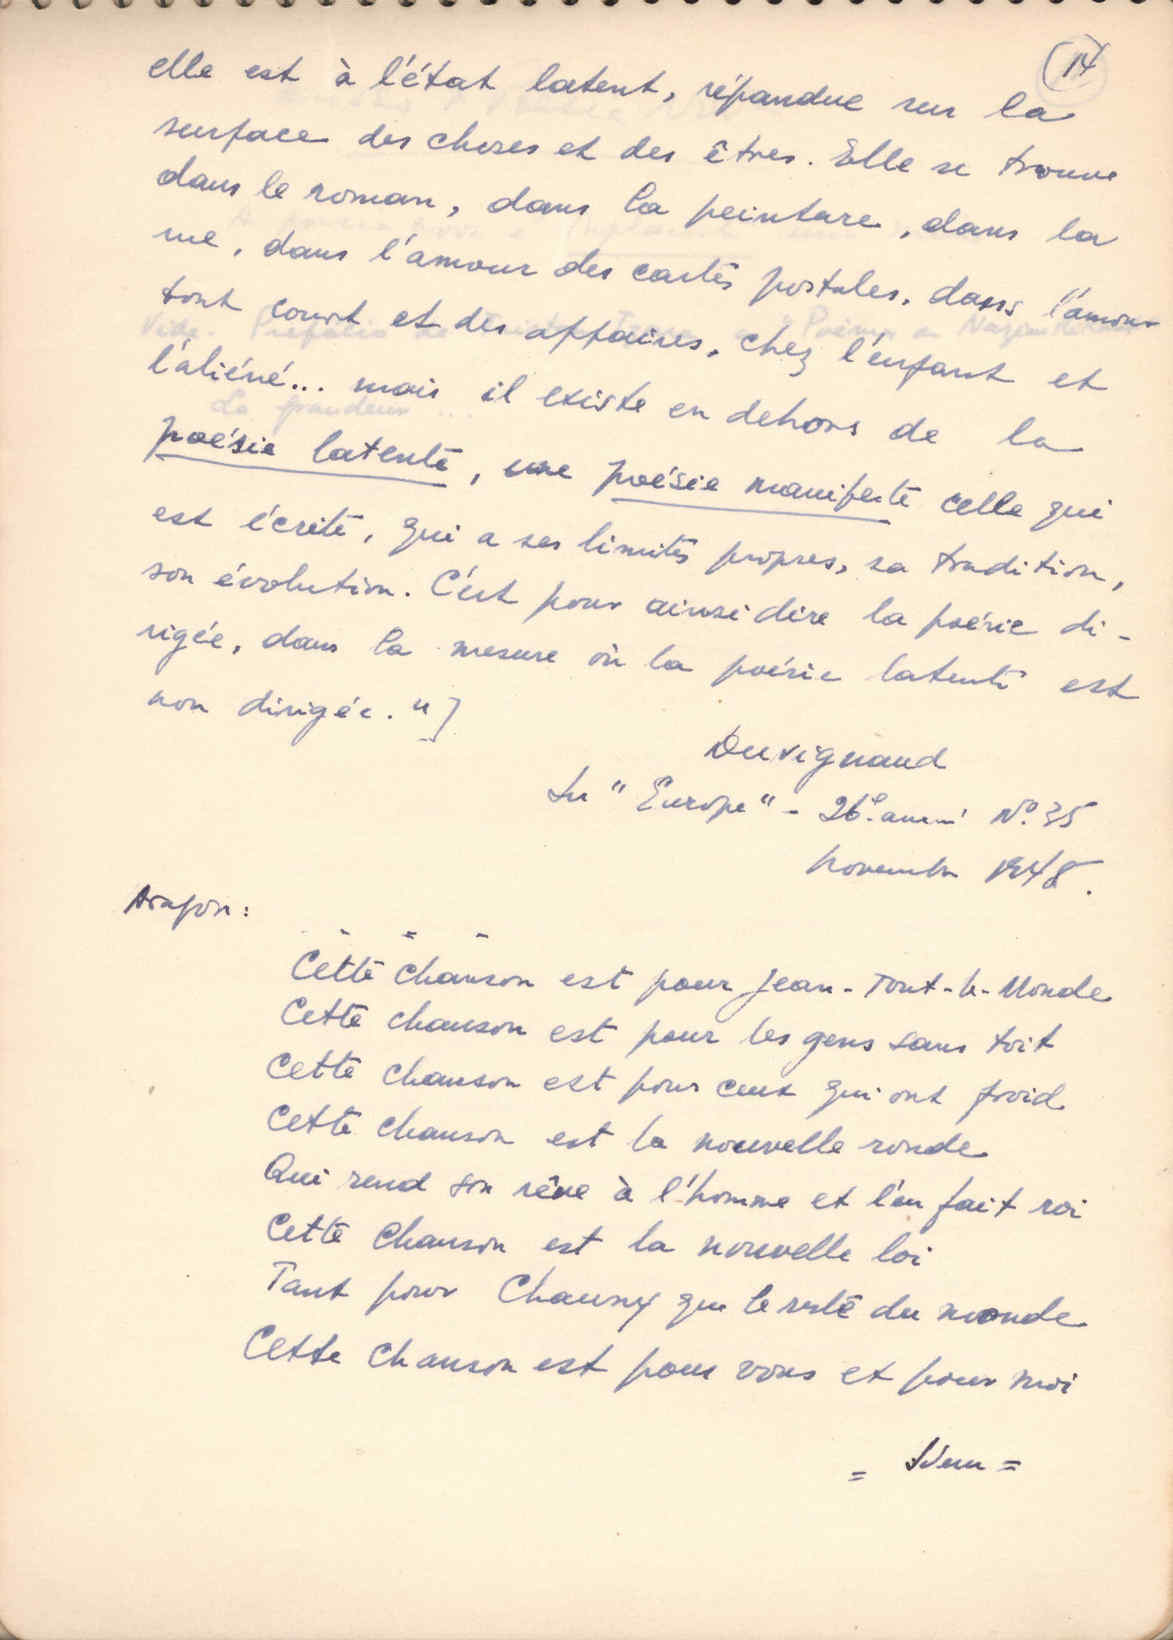 14
elle est à l'état latent, répandue sur la
surface des choses et des êtres. Elle se trouve
dans le roman, dans la peinture, dans la
rue, dans l'amour des cartes postales, dans l'amour
tout court et des affaires, chez l'enfant et
l'aliéné... mais il existe en dehors de la
poésie latente, une poésie manifeste celle qui
est écrite, qui a ses limites propres, sa tradition,
son évolution. C'est pour ainsi dire la poésie di-
rigée, dans la mesure où la poésie latente est
non dirigée."]
Duvignaud
In "Europe" - 26e année No. 35
Novembre 1948.
Aragon:
- - -
Cette chanson est pour Jean-Tout-le-Monde
Cette chanson est pour les gens sans toit
Cette chanson est pour ceux qui ont froid
Cette chanson est la nouvelle ronde
Qui rend son rêve à l'homme et l'en fait roi
Cette chanson est la nouvelle loi
Tant pour Chauny que le reste du monde
Cette chanson est pour vous et pour moi
= Idem =